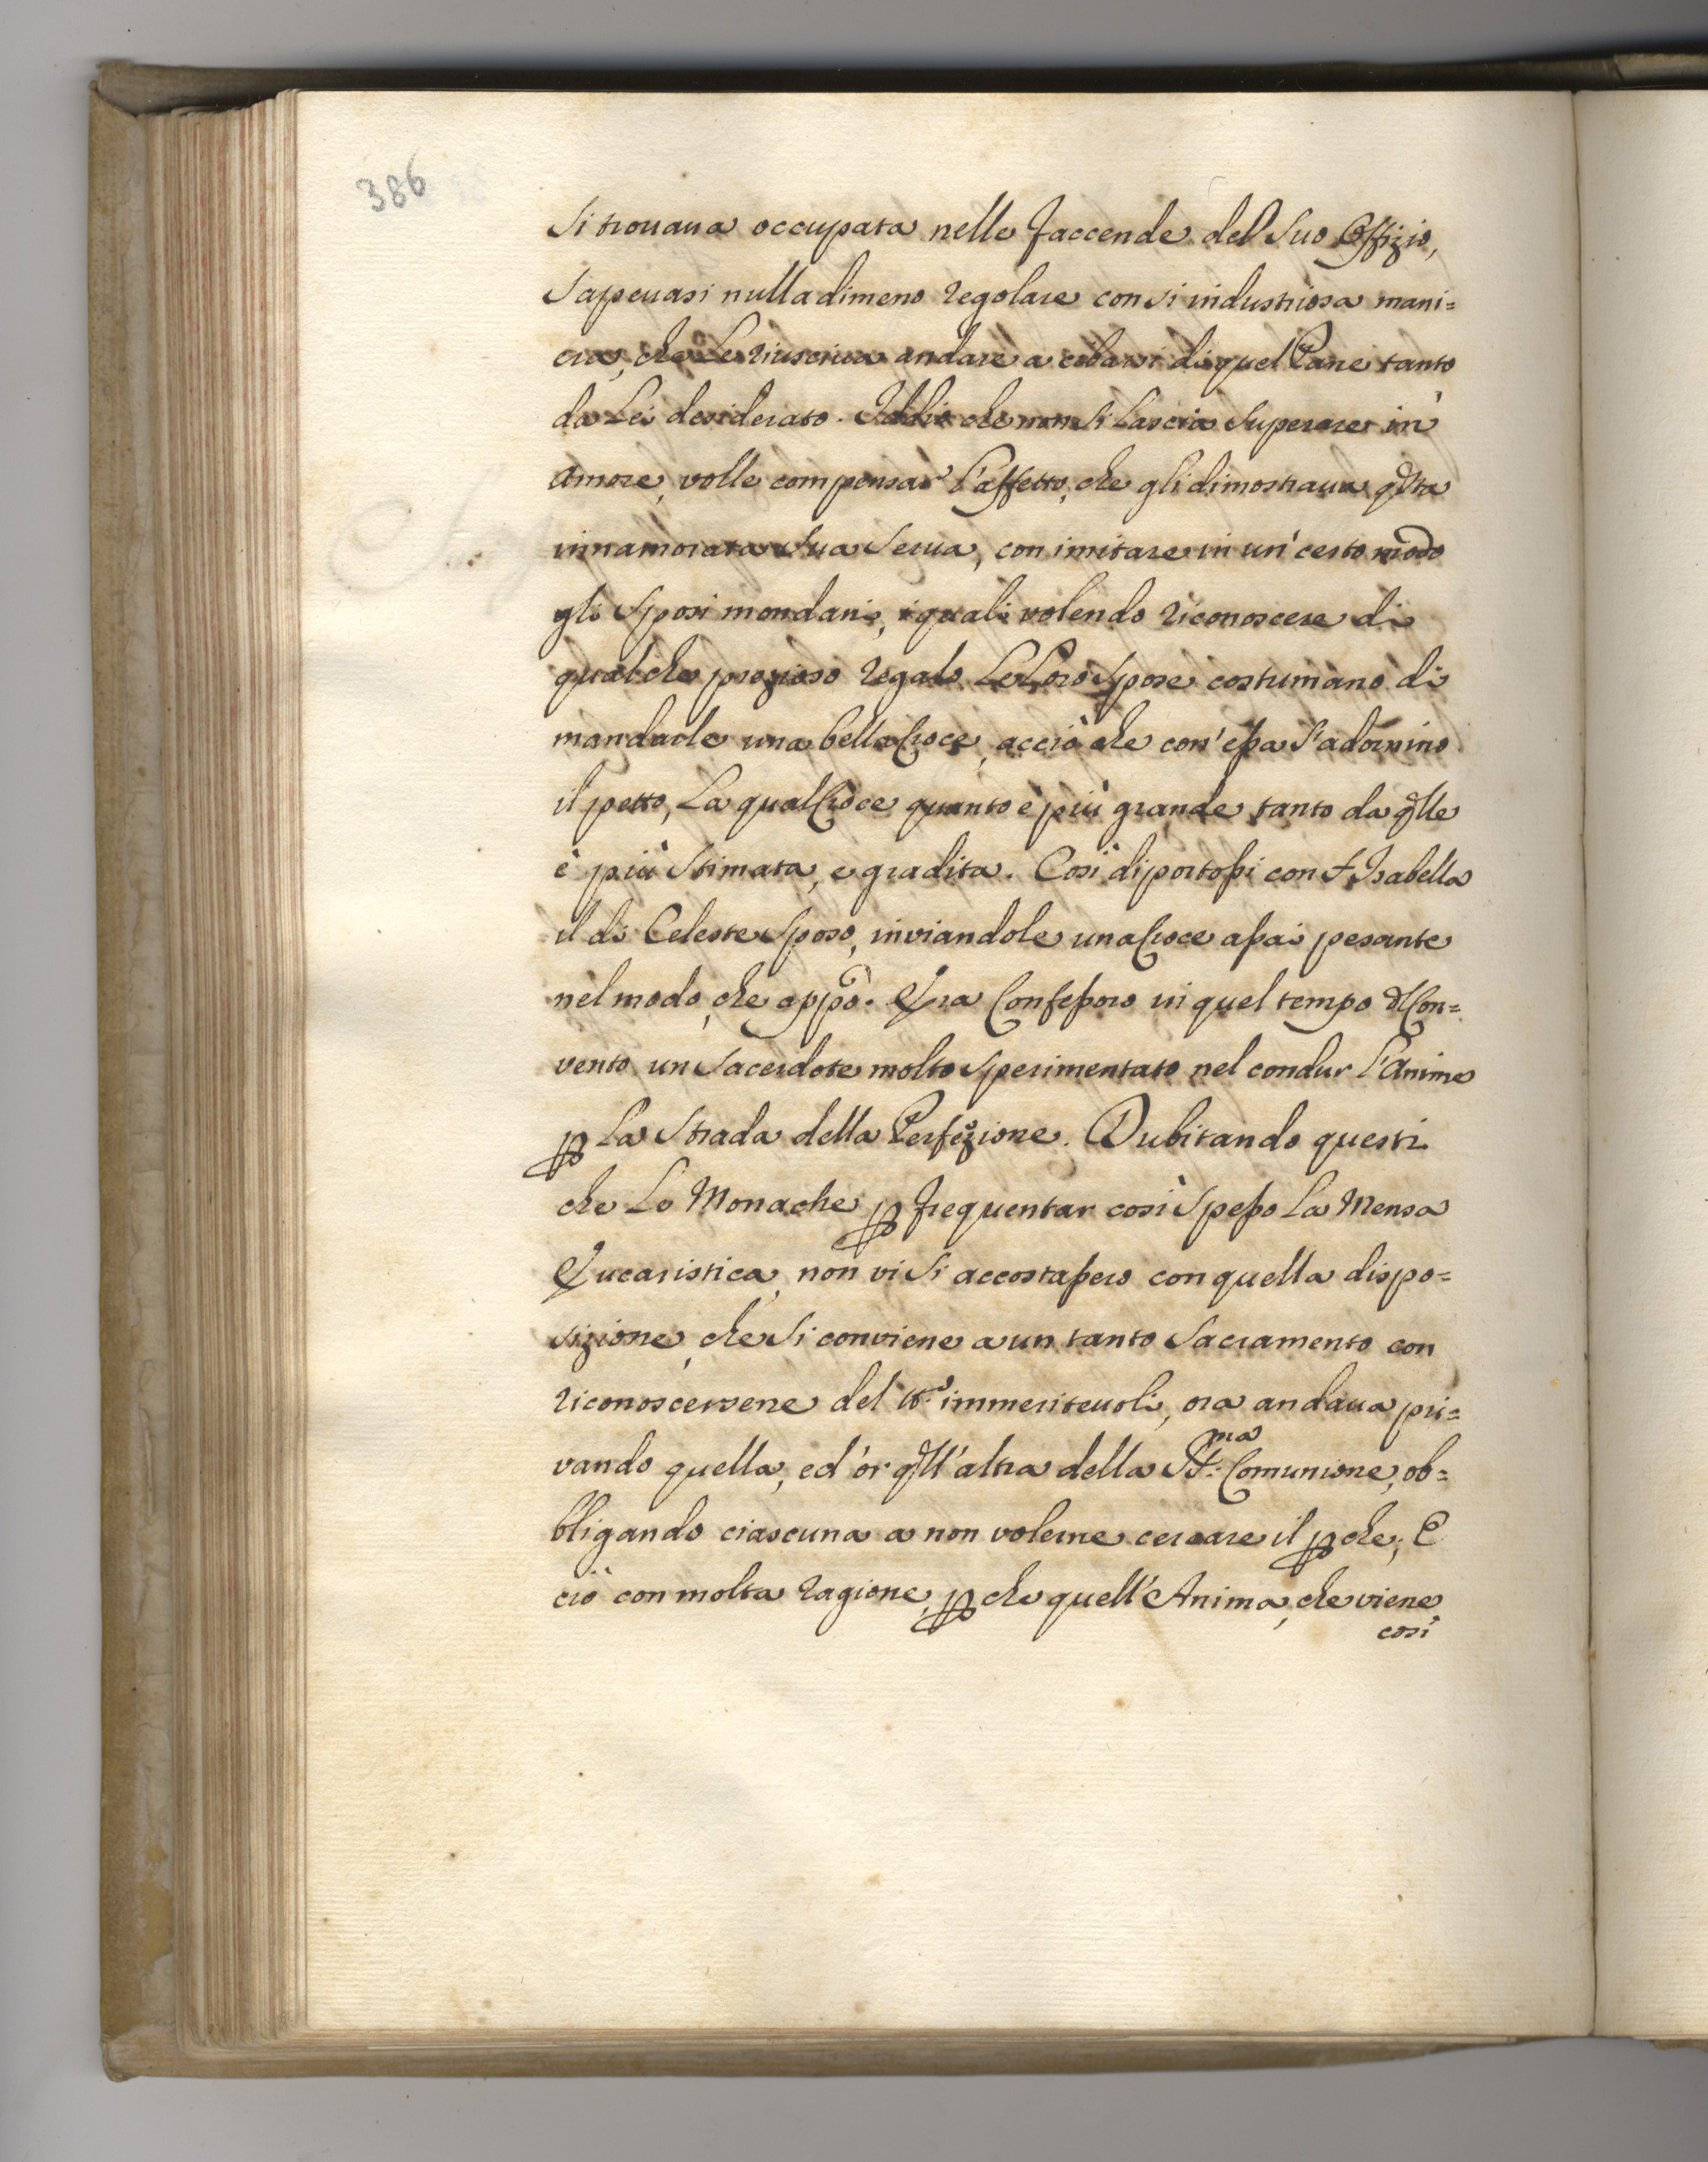 386
Si trouaua occupata nelle faccende del Suo Offizio,
Sapeuasi nulladimeno regolare con si industriosa mani=
era, che Le riusciua andare a cibarsi di quel Pane tanto
da Lei desiderato. Iddio che non si Lascia Superare in
Amore, volle compensar l'affetto, che gli dimostraua qsta
innamorata Sua Serua, con imitare in un' certo modo
gli Sposi mondani, i quali volendo riconoscere di
qualche prezioso regalo Le Loro Spose costumano di
mandarle una bella Croce, acciò che con' essa s'adornino
il petto, La qual Croce quanto è più grande, tanto da qlle
è più Stimata, e gradita. Così diportossi con S. Isabella
il di Celeste Sposo, inviandole una Croce assai pesante
nel modo, che appo. Era Confessoro in quel tempo dl Con=
vento un Sacerdote molto Sperimentato nel condur l'Anime
p La Strada della Perfezione. Dubitando questi
che Le Monache p frequentar così Spesso La Mensa
Eucaristica, non vi Si accostassero con quella dispo=
sizione, che Si conviene a un tanto Sacramento con
riconoscersene del tto immeriteuoli, ora andaua pri=
vando quella, ed' or qll'altra della SSma Comunione, ob=
bligando ciascuna a non volerne cercare il pche; E
ciò con molta ragione, pche quell'Anima, che viene
così